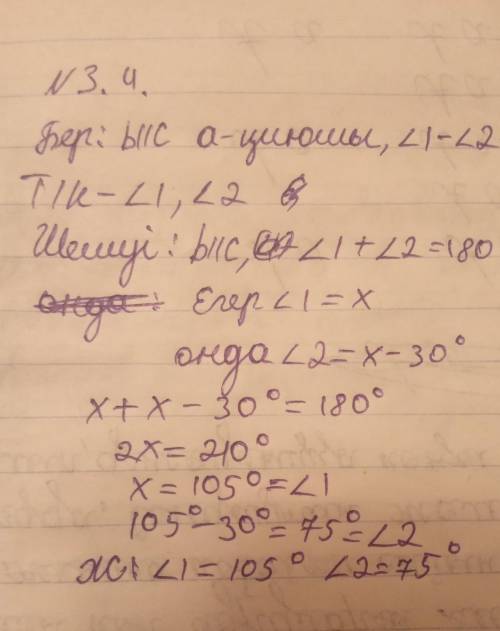 N 3. 4.
Бер: b||c а-қиюшы, ∠1-∠2
Т/к-∠1, ∠2
Шешуі: b||c, ∠1+∠2=180
онда: Егер ∠1=x
онда ∠2=x-30°
x+x-30°=180°
2x=210°
x=105°=∠1
105°-30°=75°=∠2
Ж: ∠1=105° ∠2=75°